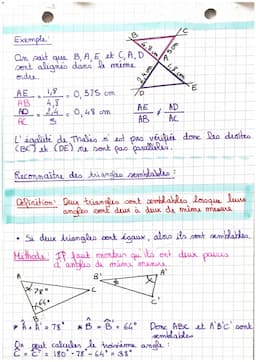 Exemple:
On sait que B, A, E et C, A, D
sont alignés dans le même
ordre.
B
C
4,8 cm
5 cm
A
2,4 cm
1,8 cm
D
E
AE = 1,8 = 0,375 cm
AB 4,8
AD = 2,4 = 0,48 cm
AC 5
AE ≠ AD
AB AC
L'égalité de Thalès n'est pas vérifiée donc les droites
(BC) et (DE) ne sont pas parallèles.
Reconnaître des triangles semblables:
Définition: Deux triangles sont semblables lorsque leurs
angles sont deux à deux de même mesure.
• Si deux triangles sont égaux, alors ils sont semblables.
Méthode: Il faut montrer qu'ils ont deux paires
d'angles de même mesure.
A
78°
64°
B
C
B'
A'
C'
• Â = Â' = 78° • B̂ = B̂' = 64° Donc ABC et A'B'C' sont
semblables
On peut calculer le troisième angle:
Ĉ = Ĉ' = 180° - 78° - 64° = 38°